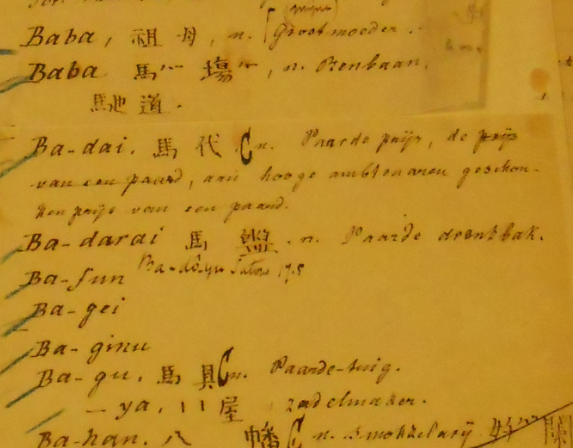 Baba, 祖母, n. Grootmoeder.
Baba 馬 場, n. Renbaan.
馳道.
Ba-dai. 馬代 C n. Paarde prijs, de prijs
van een paard, aan hooge ambtenaren geschon-
ken prijs van een paard.
Ba-darai 馬盥. n. Paarde drenkbak.
Ba-fun
Ba-gei
Ba-ginu
Ba-gu. 馬具 C n. Paarde-tuig.
— ya. 〃 屋 zadelmaker.
Ba-han. 八幡 C n. Smokkelarij